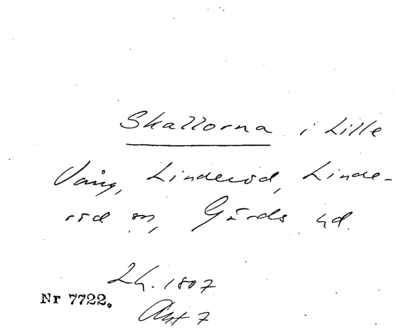 Skallorna i Lille
Vång, Linderöd, Linde-
röd sn, Gärds hd.
Lh. 1807
Nr 7722.
Akt 7